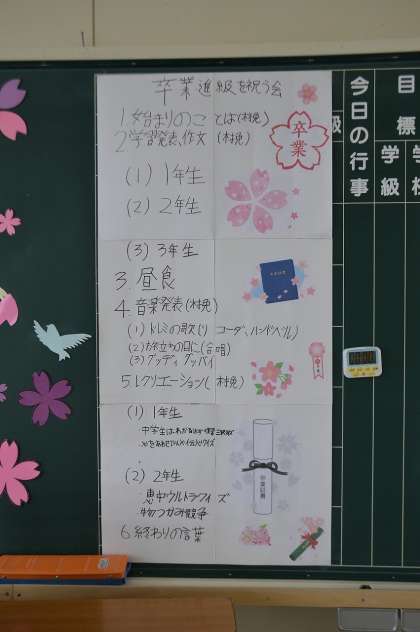 卒業進級を祝う会
1 始まりのことば(村免)
2 学習発表、作文 (村免)
(1) 1年生
(2) 2年生
(3) 3年生
3. 昼食
4. 音楽発表(村免)
(1) ドレミの歌(リコーダ、ハンドベル)
(2) 旅立ちの日に(合唱)
(3) グッディ グッバイ
5 レクリエーション( 村免)
(1) 1年生
中学生は
(2) 2年生
恵中ウルトラクイズ
物つかみ競争
6 終わりの言葉
卒業
卒業証書
今日の行事
目標
学級
学校
級